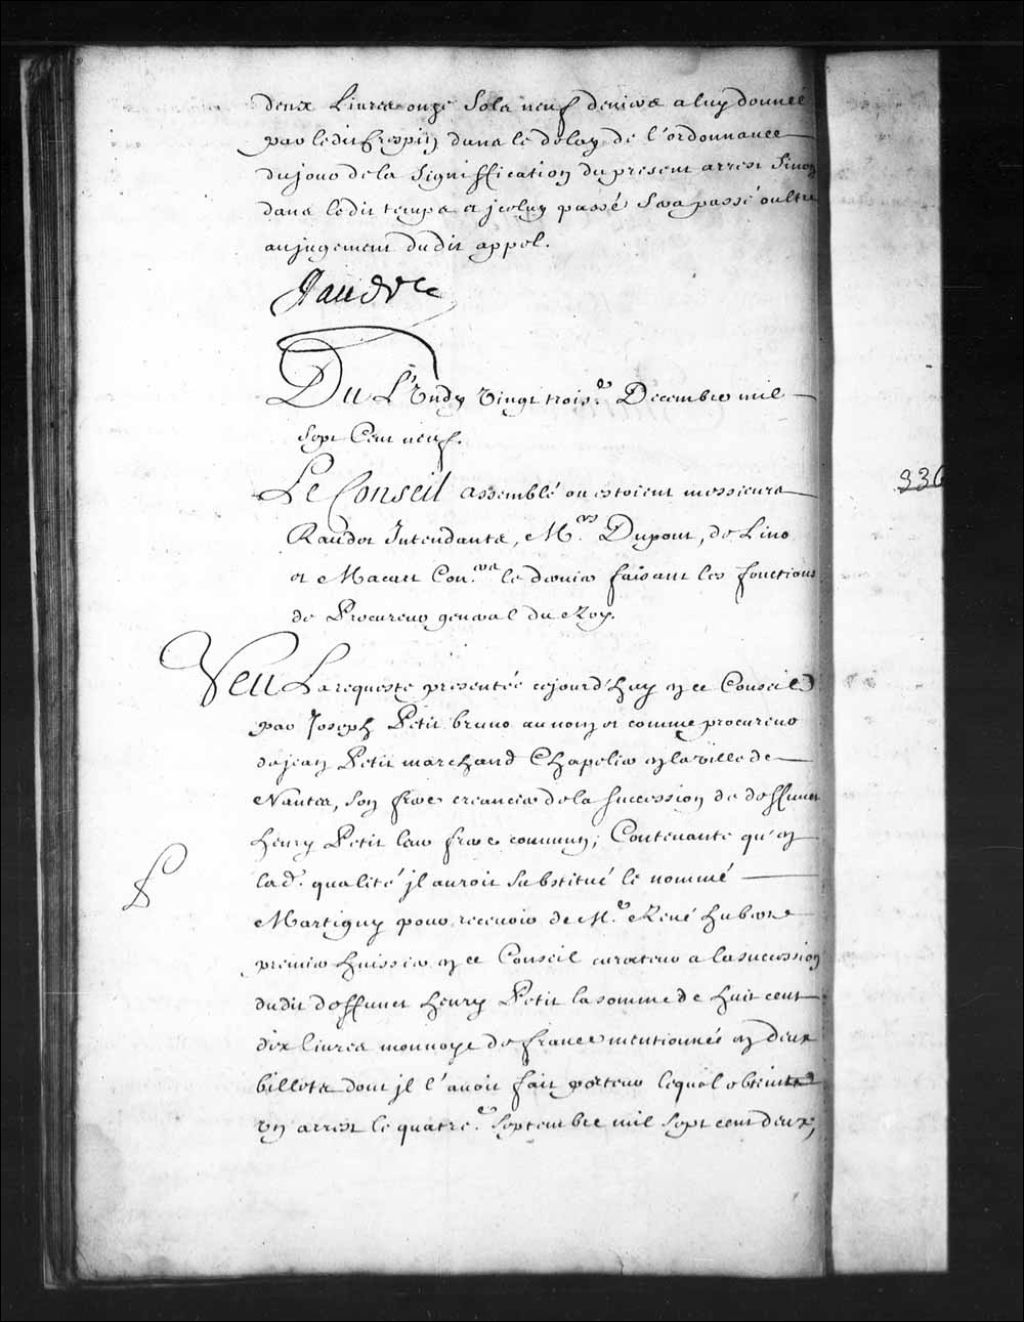 deux Livres onze Sols neuf deniers a luy donnée
par ledit Crespin dans le delay de l'ordonnance
du jour de la Signiffication du present arrest Sinon
dans ledit temps et jceluy passé Sera passé oultre
au jugement dudit appel.
Raudot
Du Lundy Vingt trois.e Decembre mil
Sept Cent neuf.
Le Conseil assemblé ou estoient messieurs
Raudot Intendants, M.rs Dupont, de Lino
et Macart Con.ers le dernier faisant les fonctions
de Procureur general du Roy.
Veu La requeste presentée cejourd'huy en ce Conseil
par Joseph Petit bruno au nom et comme procureur
de jean Petit marchand Chapelier en la ville de
Nantes, son frere creancier de la succession de deffunct
henry Petit leur frere commun; Contenante qu'en
lad. qualité jl auroit substitué le nommé
Martigny pour recevoir de M.e René hubert
premier huissier en ce Conseil curateur a la succession
dudit deffunct henry Petit la somme de huit cent
dix livres monnoye de france mentionnés en deux
billets dont jl l'avoit fait porteur lequel obteint
un arrest le quatre.e Septembre mil Sept cent deux,
336